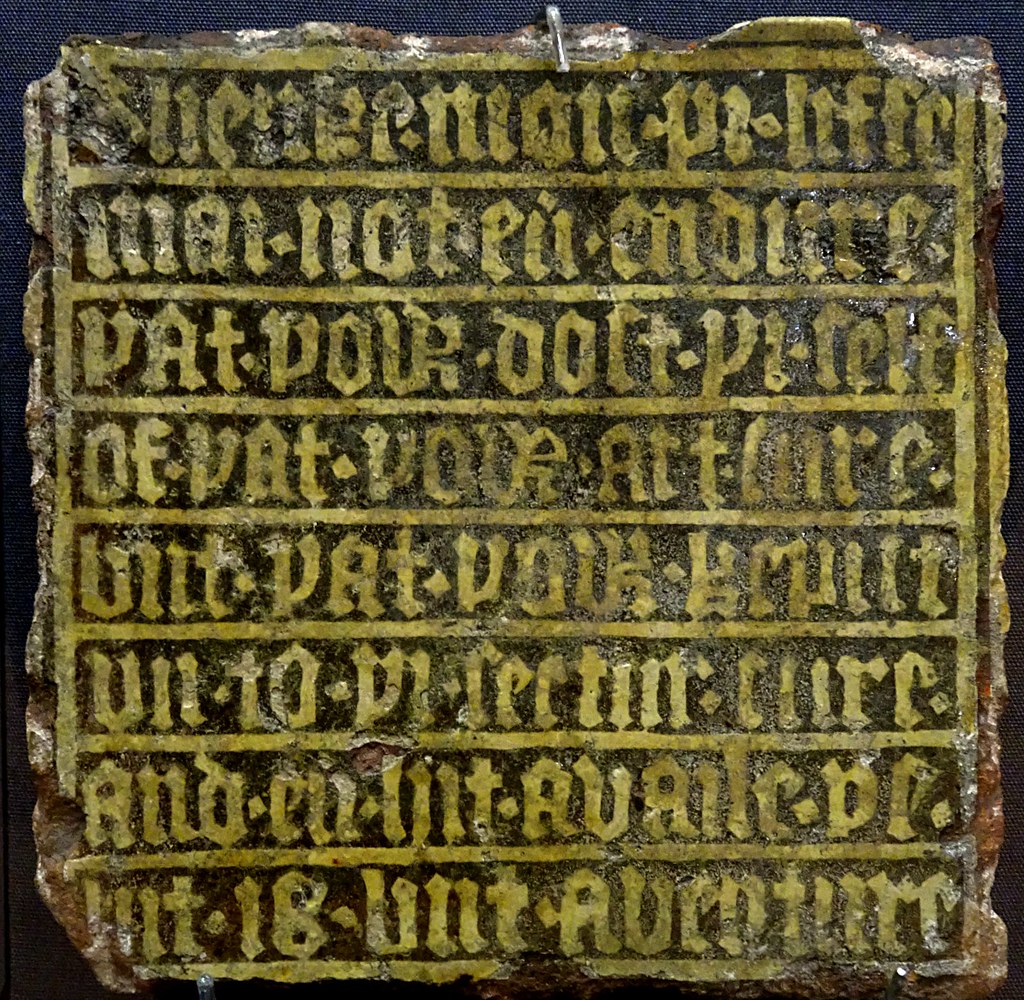 Thenke · mon · þi · liffe
mai · not · eu̅ · endure ·
þAt · þow · dost · þi · self
of · þAt · þow · Art · sure ·
but · þAt · þow · kepist
un · to · þi · sectur · cure ·
And · eu̅ · hit · Availe · þe ·
hit · is · but · Aventure